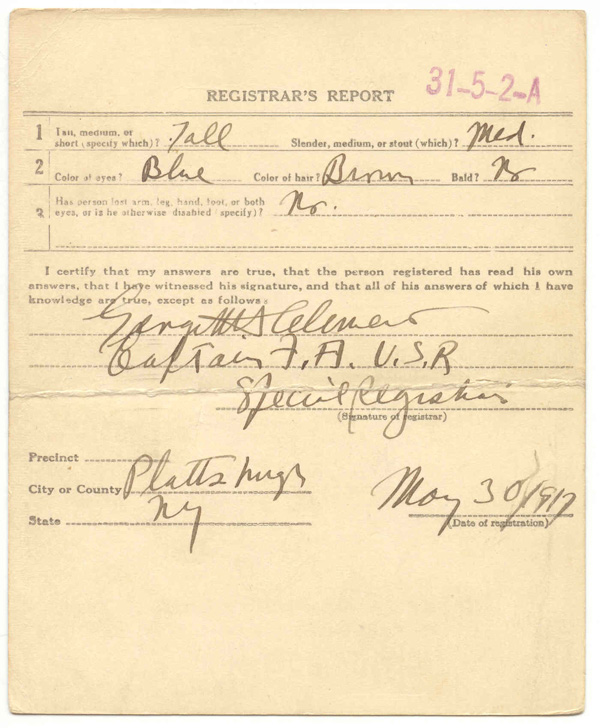 31-5-2-A
REGISTRAR'S REPORT
1 Tall, medium, or short (specify which)? Tall Slender, medium, or stout (which)? Med.
2 Color of eyes? Blue Color of hair? Brown Bald? No
3 Has person lost arm, leg, hand, foot, or both
eyes, or is he otherwise disabled (specify)? No.
I certify that my answers are true, that the person registered has read his own
answers, that I have witnessed his signature, and that all of his answers of which I have
knowledge are true, except as follows:
Clement
Captain F.A. U.S.R
Special Registrar
(Signature of registrar)
Precinct
City or County Plattsburgh
State NY
May 30/1917
(Date of registration)